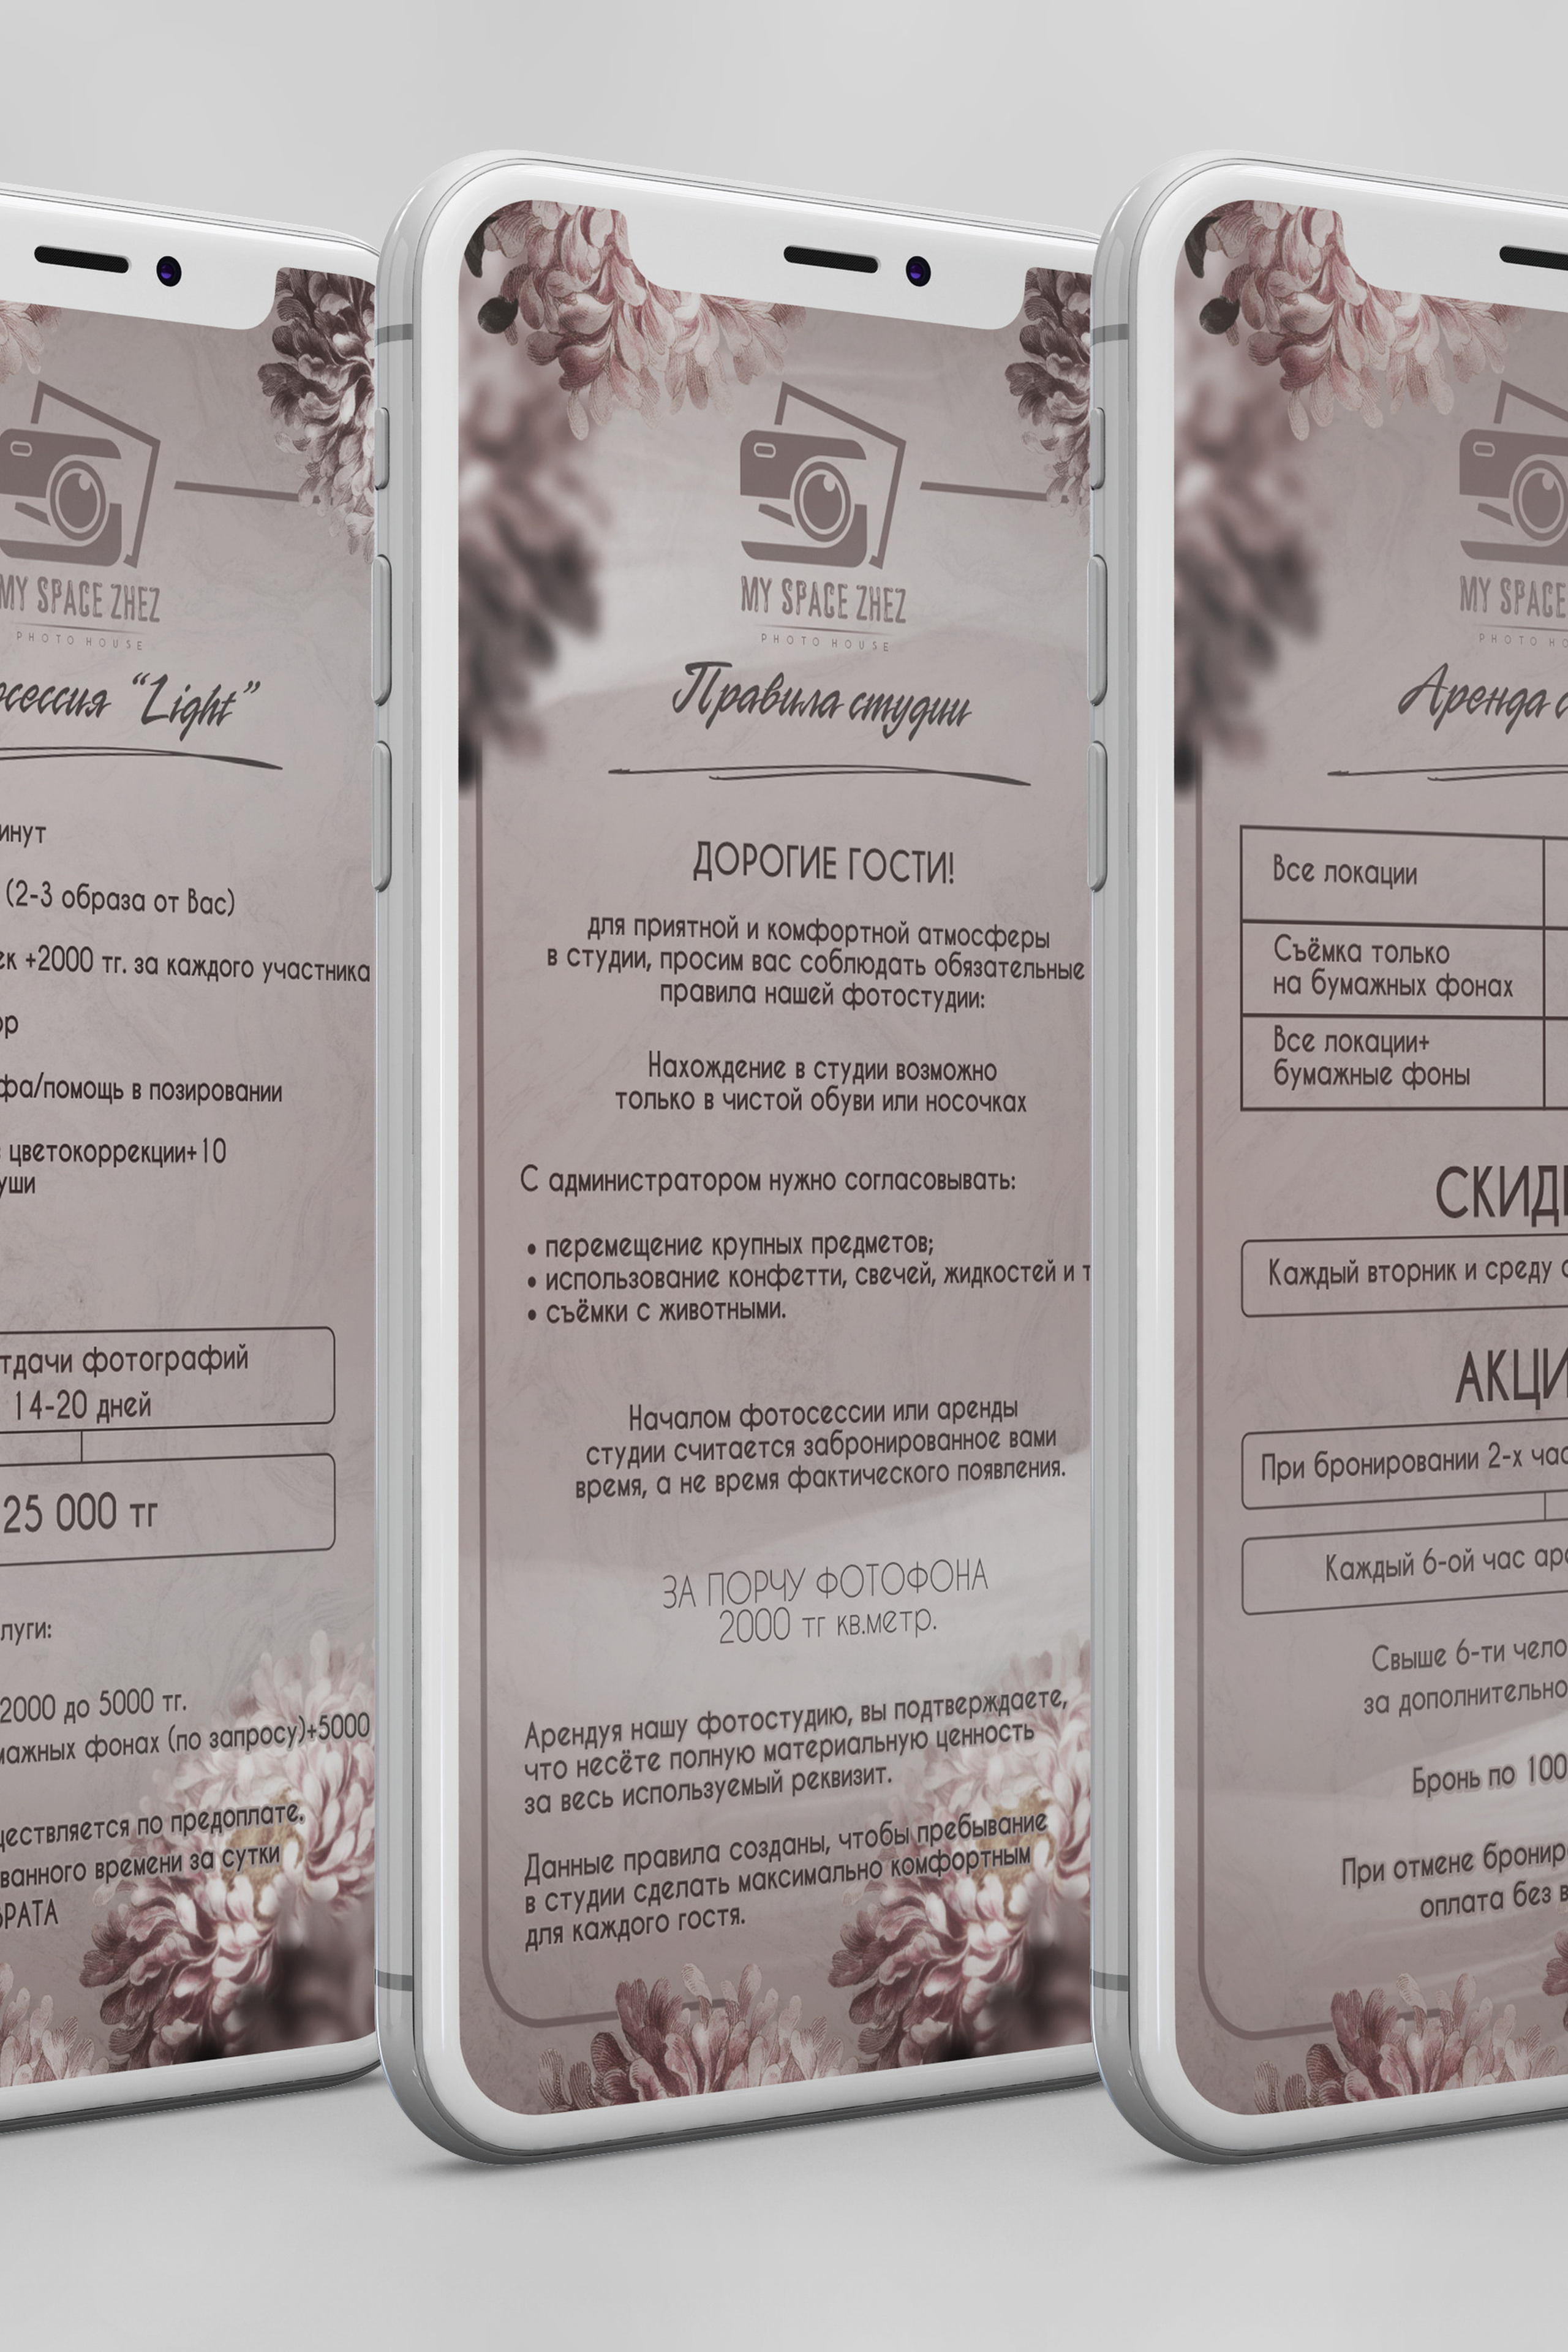 MY SPACE ZHEZ
PHOTO HOUSE
“Light”
(2-3 образа от Вас)
+2000 тг. за каждого участника
помощь в позировании
цветокоррекции+10
фотографий
14-20 дней
25 000 тг
2000 до 5000 тг.
фонах (по запросу)+5000
по предоплате.
времени за сутки
MY SPACE ZHEZ
PHOTO HOUSE
Правила студии
ДОРОГИЕ ГОСТИ!
для приятной и комфортной атмосферы
в студии, просим вас соблюдать обязательные
правила нашей фотостудии:
Нахождение в студии возможно
только в чистой обуви или носочках
С администратором нужно согласовывать:
• перемещение крупных предметов;
• использование конфетти, свечей, жидкостей и т
• съёмки с животными.
Началом фотосессии или аренды
студии считается забронированное вами
время, а не время фактического появления.
ЗА ПОРЧУ ФОТОФОНА
2000 тг кв.метр.
Арендуя нашу фотостудию, вы подтверждаете,
что несёте полную материальную ценность
за весь используемый реквизит.
Данные правила созданы, чтобы пребывание
в студии сделать максимально комфортным
для каждого гостя.
MY SPACE
PHOTO
Аренда
Все локации
Съёмка только
на бумажных фонах
Все локации+
бумажные фоны
Каждый вторник и среду
При бронировании 2-х
Каждый 6-ой час
Свыше 6-ти
за
Бронь по 100
При отмене
оплата без